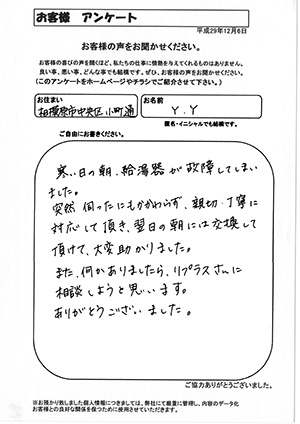 お客様 アンケート
平成29年12月6日
お客様の声をお聞かせください。
お客様の喜びの声を聞くほど、私たちの仕事に情熱を与えてくれるものはありません。
良い事、悪い事、どんな事でも結構です。ぜひ、お客様の声をお聞かせください。
(このアンケートをホームページやチラシでご紹介させて下さい。)
お住まい
お名前
相模原市中央区小町通
Y.Y
匿名・イニシャルでも結構です。
ご自由にお書きください。
寒い日の朝、給湯器が故障してしまい
ました。
突然伺ったにもかかわらず、親切・丁寧に
対応して頂き、翌日の朝には交換して
頂けて、大変助かりました。
また、何かありましたら、リプラスさんに
相談しようと思います。
ありがとうございました。
ご協力ありがとうございました。
※お預かり致しました個人情報につきましては、弊社にて厳重に管理し、内容のデータ化
お客様との良好な関係を保つために使用させていただきます。